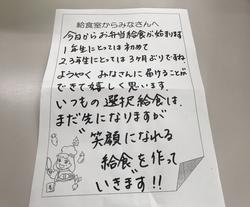 給食室からみなさんへ
今日からお弁当給食が始まります
1年生にとっては初めて
2.3年生にとっては3ヶ月ぶりですね。
ようやくみなさんに届けることが
できて嬉しく思います。
いつもの選択給食は、
まだ先になりますが
"笑顔になれる
給食を作って
いきます!!